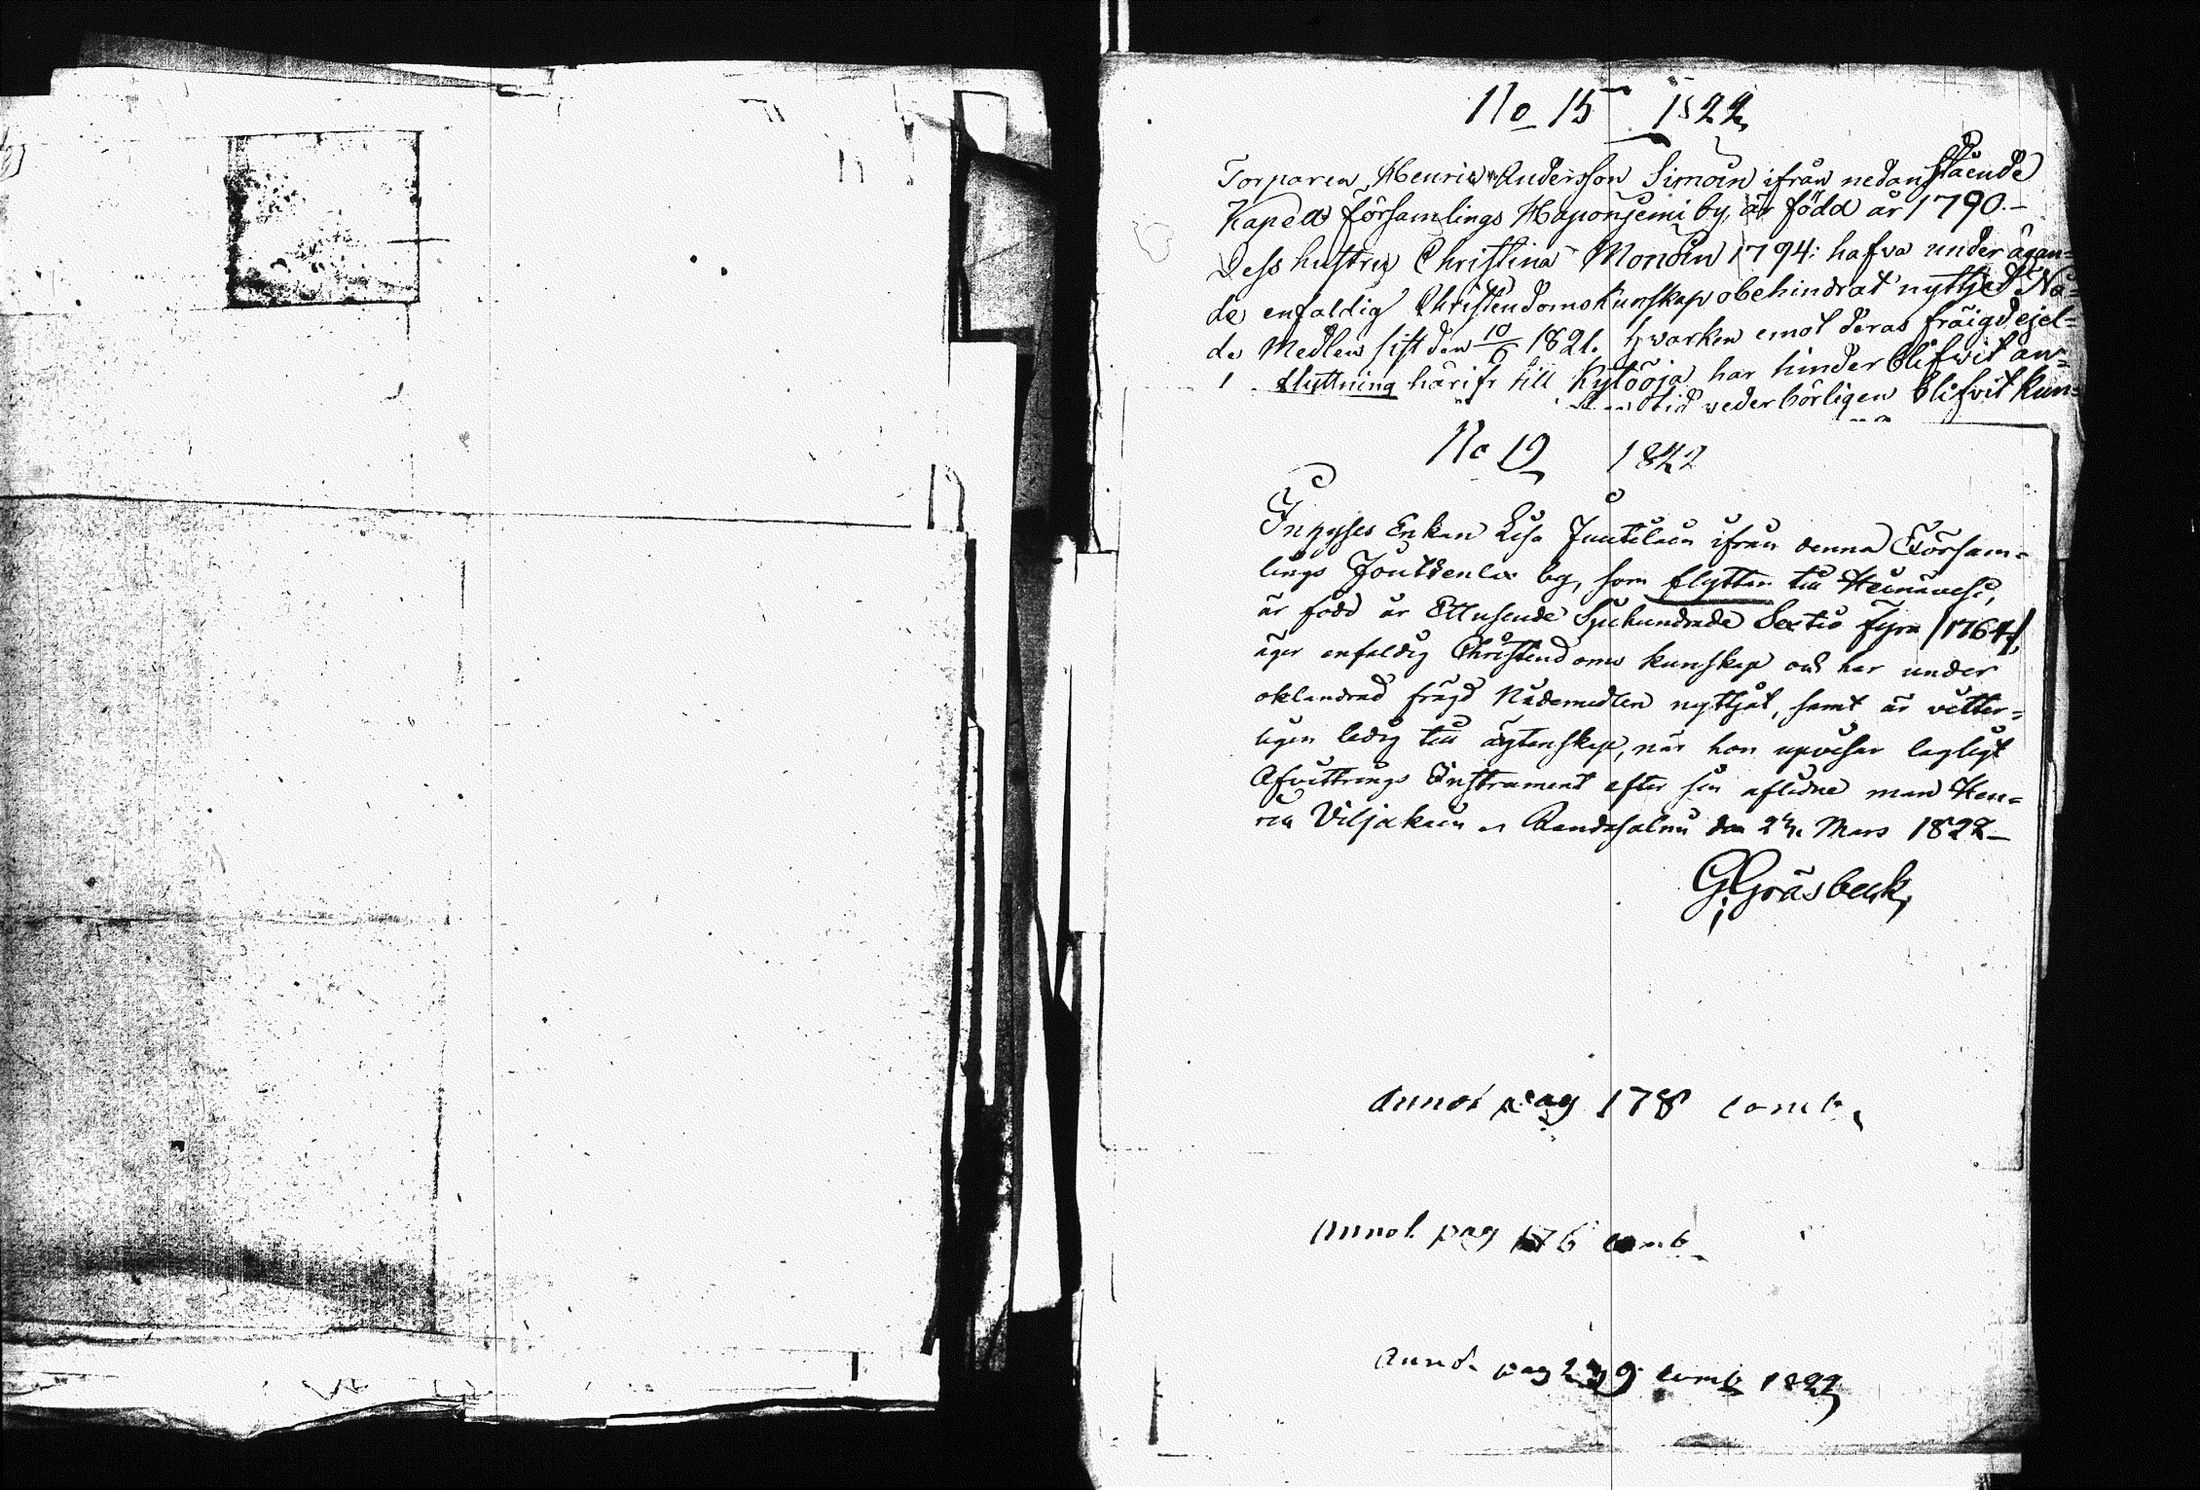 No 15 1822
Torparen Henric Andersson Simoin ifrån nedanstående
Kapell församlings Haponjemi by, är född år 1790.-
Dess hustru Christina Monoin 1794: hafva under ägan=
de enfaldig Christendomskunskap obehindrat nyttjat Nå=
de Medlen sist den 10/6 1821. Hvarken emot deras fräigd ejel=
flyttning härifr till Kylööja har hinder blifvit an=
vederbörligen blifvit kun=
No 19 1822
Inhyses Enkan Lisa Juutilain ifrån denna Försam=
lings Joutsenlax by, som flyttar till Heinävesi,
är född år Ettusende Sjuhundrade Sextio fyra /1764/,
äger enfaldig Christendoms kunskap och har under
oklandrad frägd Nådemedlen nyttjat, samt är vitter=
ligen ledig till ägtenskap, när hon upviser lagligt
Afvittrings Instrument efter sin aflidne man Hen=
ric Viljakain. Randasalmi den 24. Mars 1822-
G Gräsbeck,
Annot pag 178 comb.
Annot. pag 176 comb.
Annot. pag 279 comb 1822